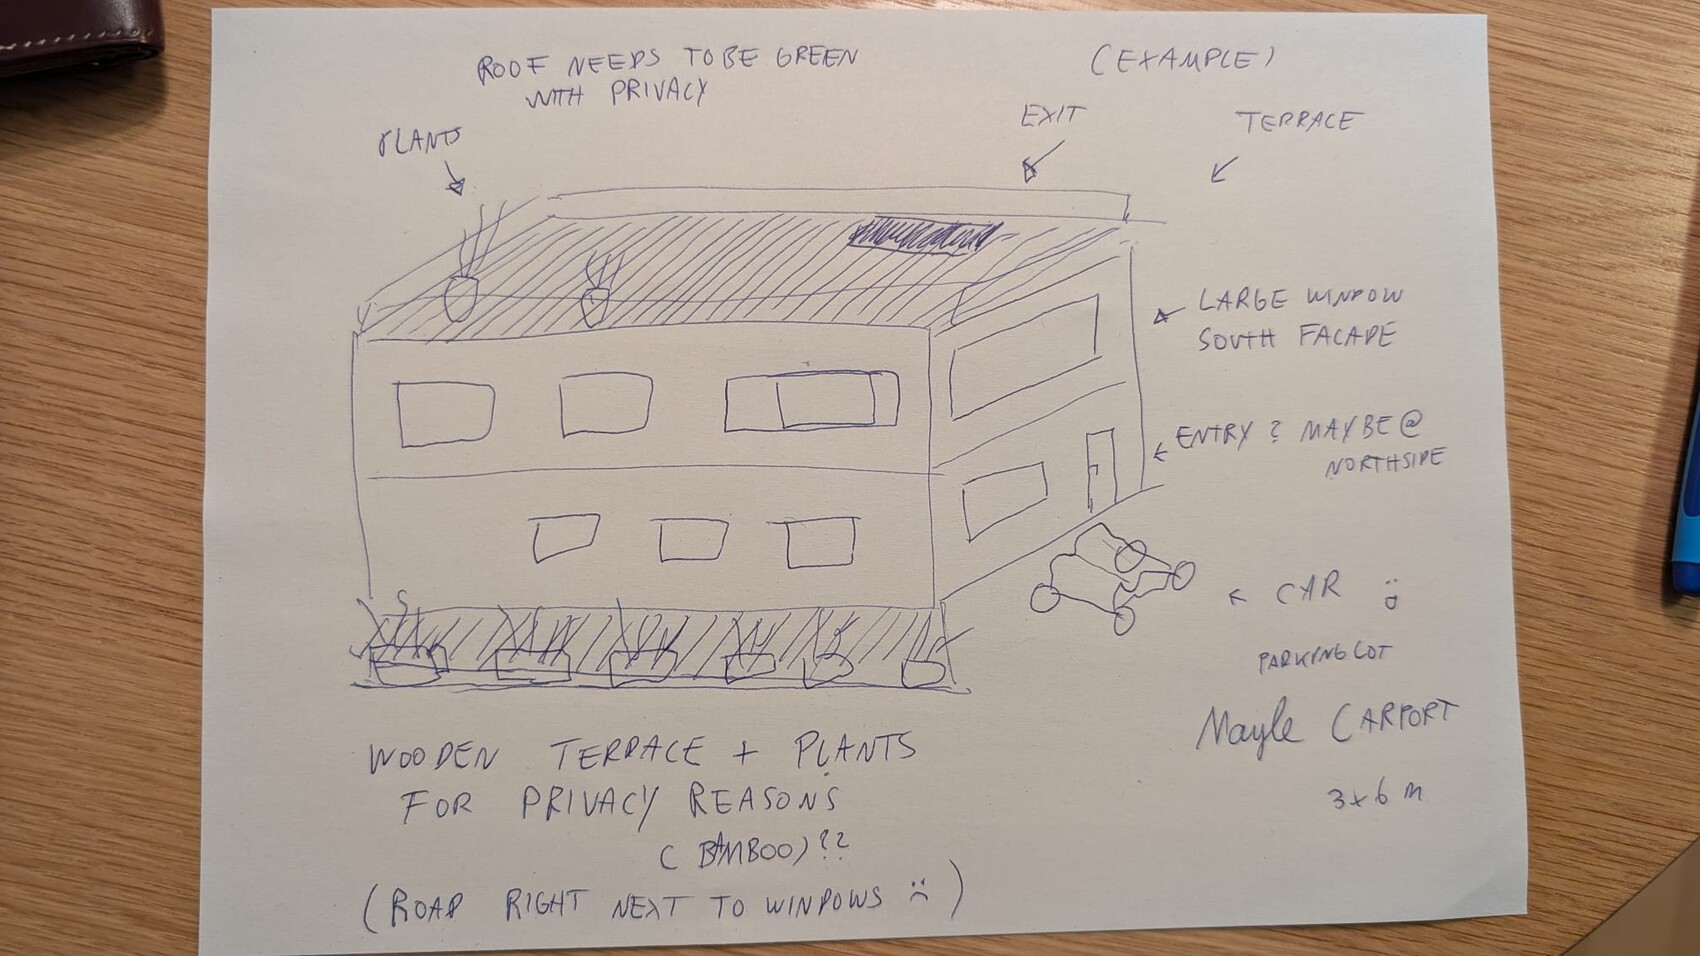 ROOF NEEDS TO BE GREEN
WITH PRIVACY
(EXAMPLE)
PLANTS
EXIT
TERRACE
LARGE WINDOW
SOUTH FACADE
ENTRY? MAYBE @
NORTHSIDE
CAR
PARKINGLOT
Maybe CARPORT
3x6 m
WOODEN TERRACE + PLANTS
FOR PRIVACY REASONS
(BAMBOO)??
(ROAD RIGHT NEXT TO WINDOWS :()